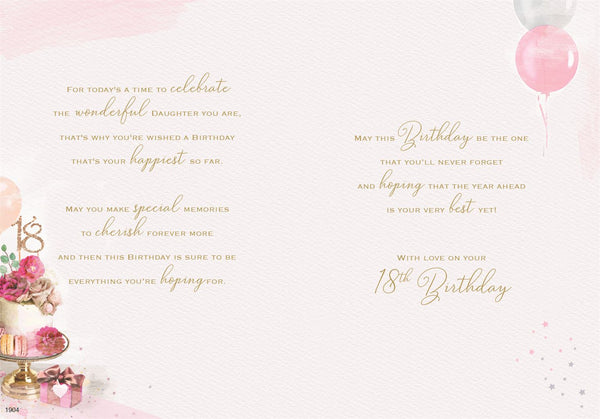 For today's a time to celebrate
the wonderful Daughter you are,
that's why you're wished a Birthday
that's your happiest so far.
May you make special memories
to cherish forever more
and then this Birthday is sure to be
everything you're hoping for.
May this Birthday be the one
that you'll never forget
and hoping that the year ahead
is your very best yet!
With love on your
18th Birthday
18
1904